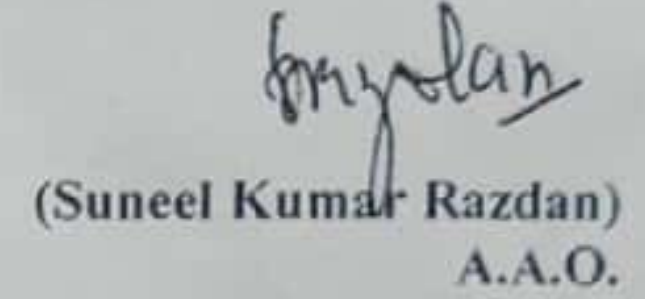 (Suneel Kumar Razdan)
A.A.O.